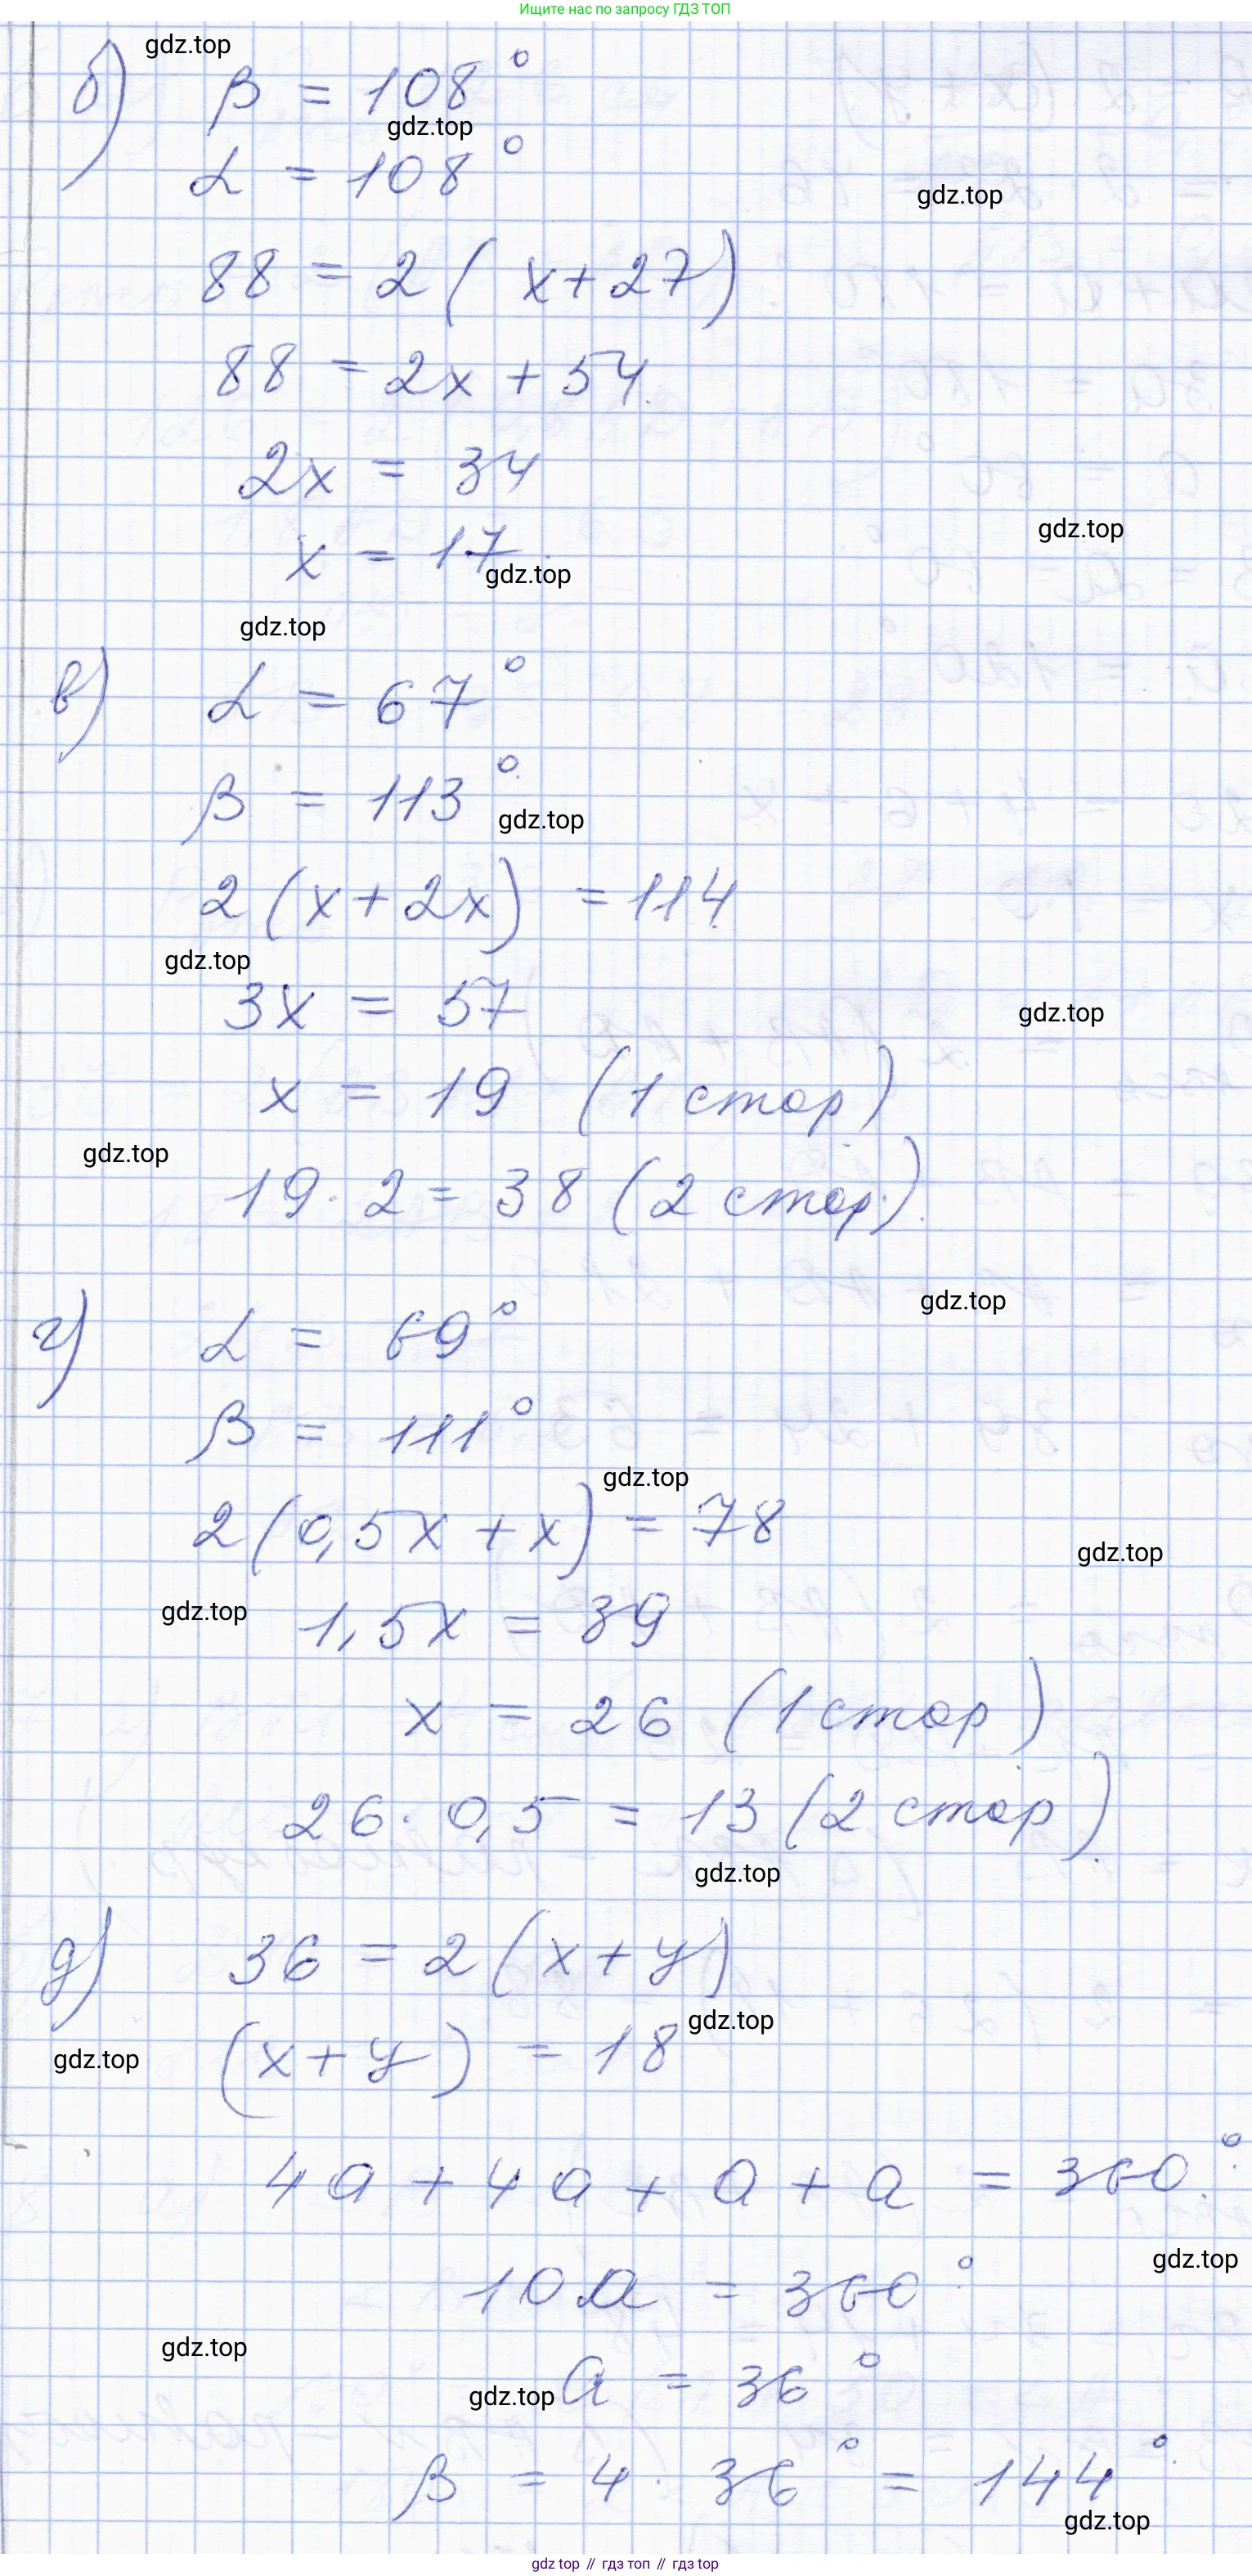 Ищите нас по запросу ГДЗ ТОП
gdz.top
б) β = 108°
gdz.top
α = 108°
gdz.top
88 = 2 ( x + 27)
88 = 2x + 54.
2x = 34
gdz.top
x = 17.
gdz.top
gdz.top
в) α = 67°
β = 113°.
gdz.top
2 (x + 2x) = 114.
gdz.top
3x = 57
gdz.top
x = 19 (1 стор)
gdz.top
19 · 2 = 38 (2 стор).
gdz.top
г) α = 69°
β = 111°
gdz.top
2(0,5x + x) = 78
gdz.top
gdz.top
1,5x = 39
x = 26 (1 стор)
26 · 0,5 = 13 (2 стор).
gdz.top
д) 36 = 2 (x + y)
gdz.top
(x + y) = 18
gdz.top
4a + 4a + a + a = 360°.
gdz.top
10a = 360°
gdz.top
a = 36°
gdz.top
β = 4 · 36° = 144°.
gdz.top
gdz top // гдз топ // гдз top